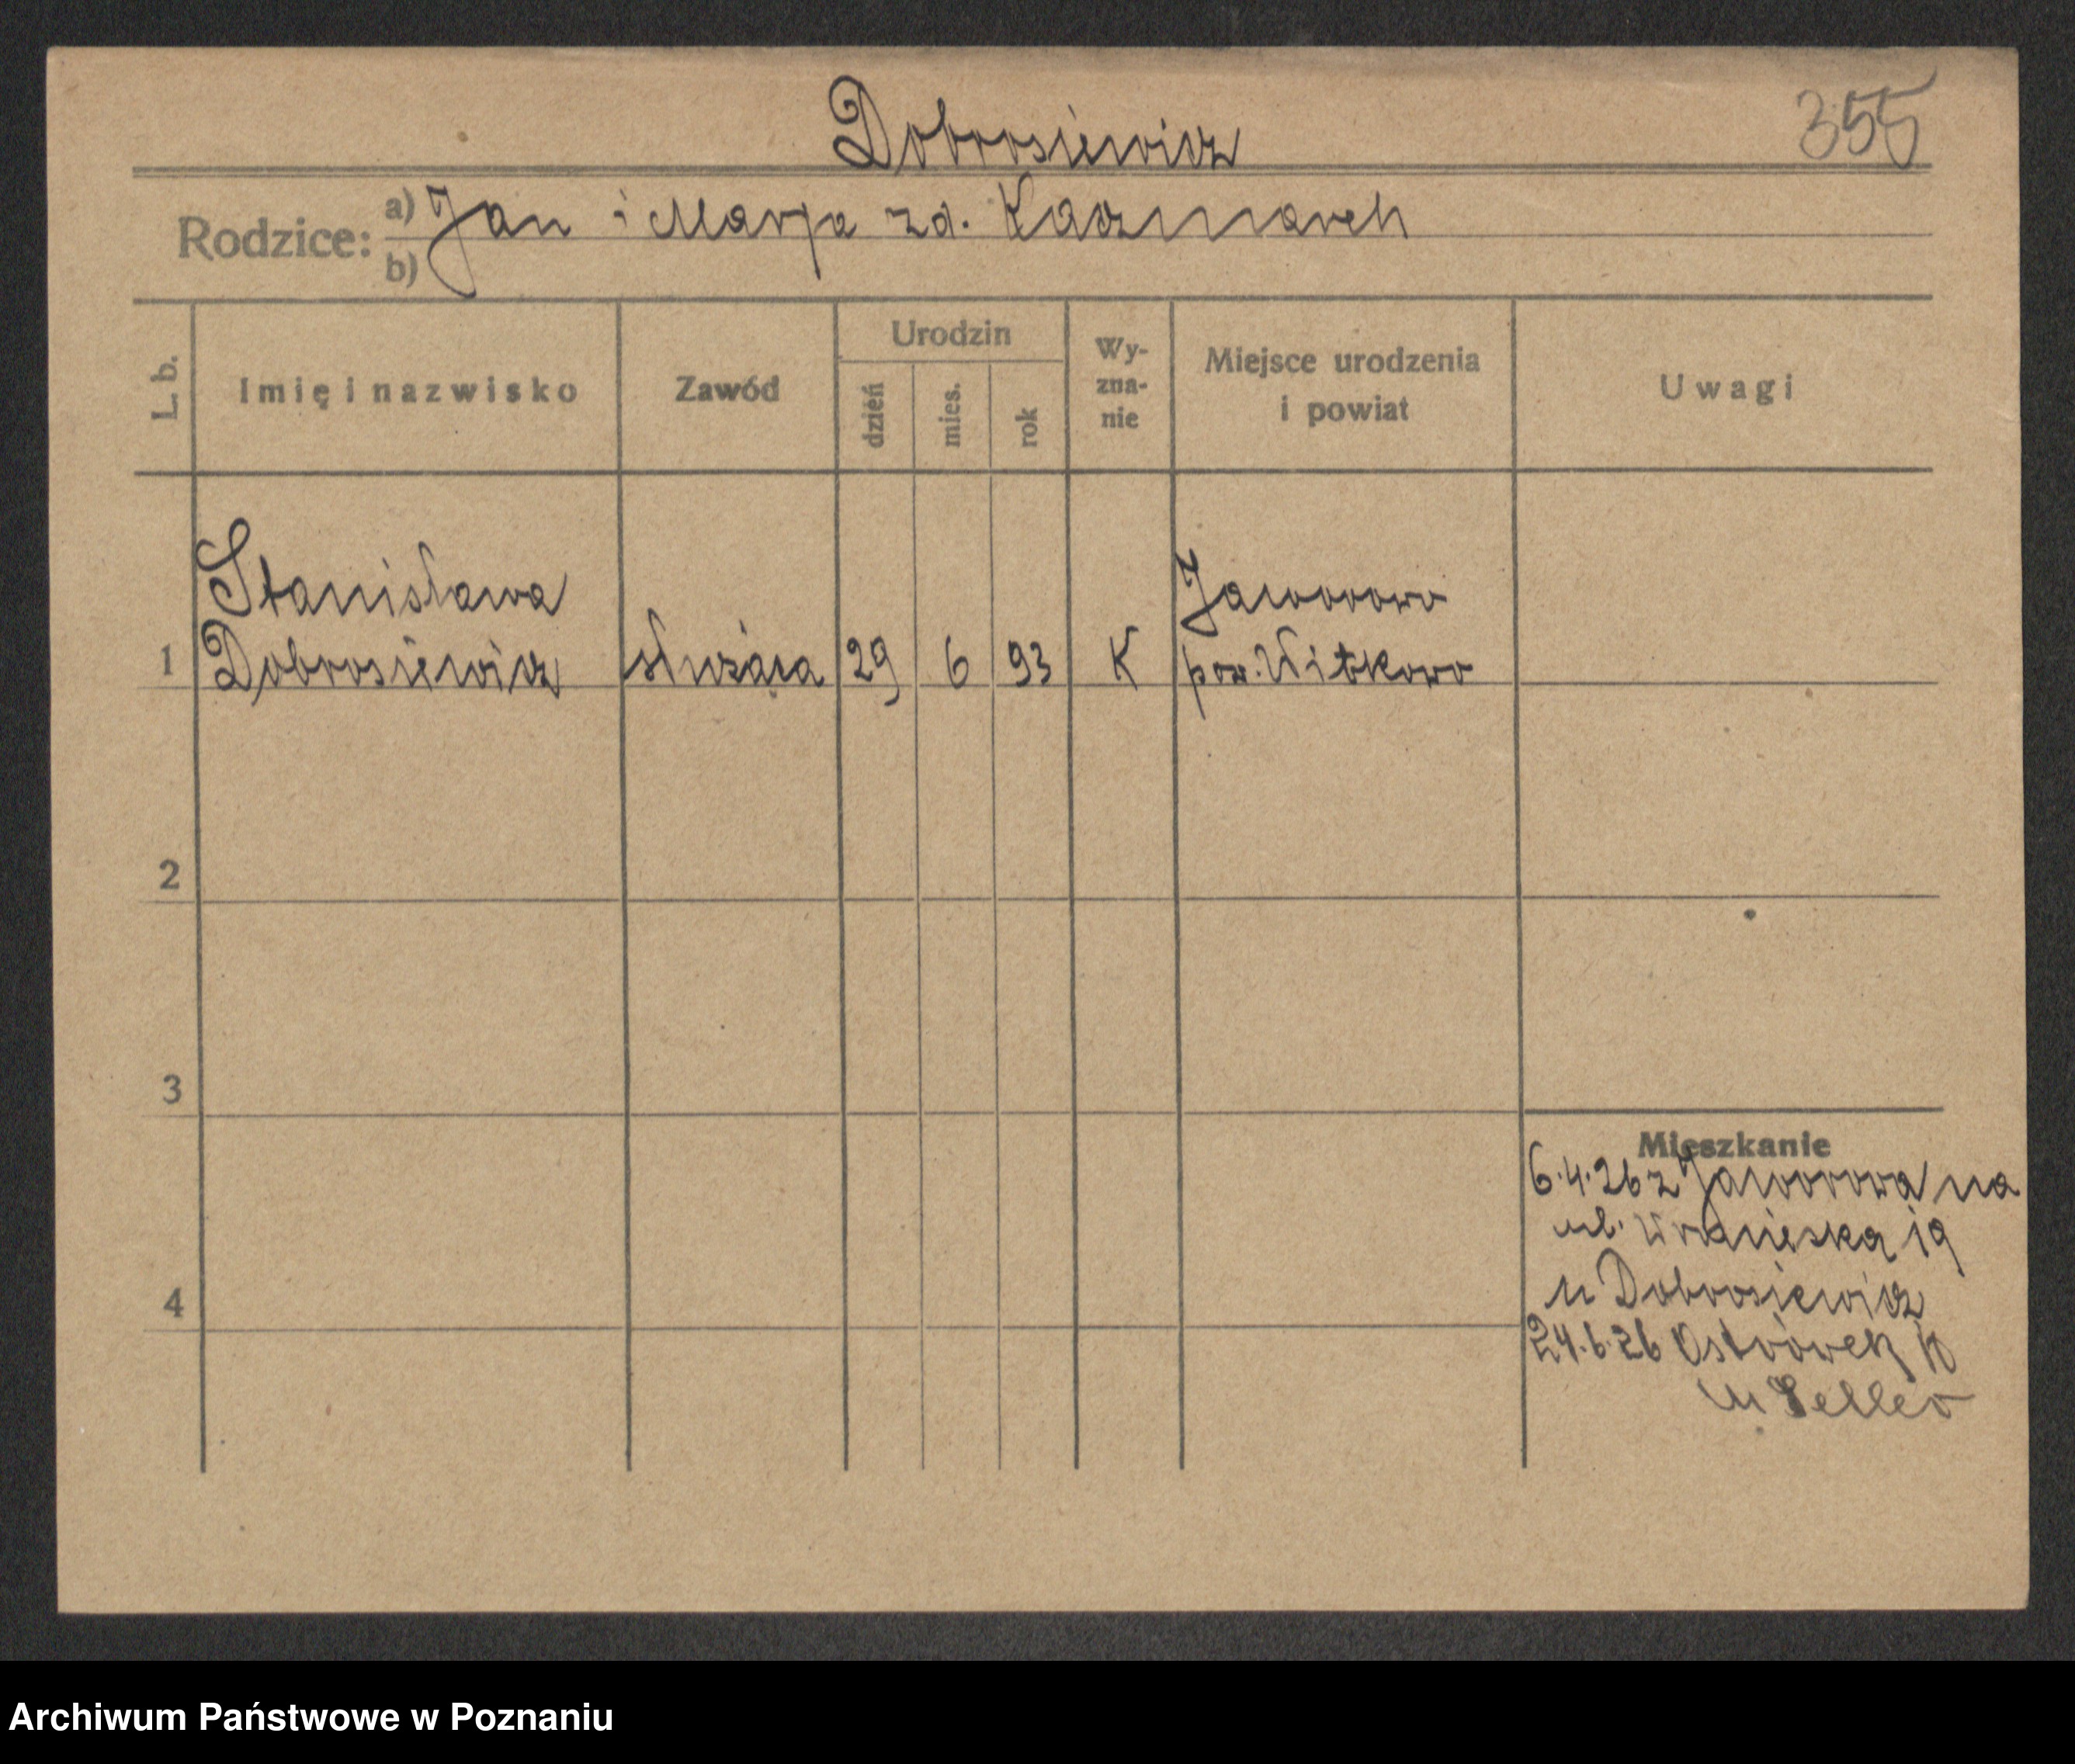 Dobrosiewicz
355
Rodzice:
a) Jan i Marja zd. Kaczmarek
b)
L. b.
Imię i nazwisko
Zawód
Urodzin
dzień
mies.
rok
Wy-
zna-
nie
Miejsce urodzenia
i powiat
Uwagi
Stanisława
Jaworowo
1 Dobrosiewicz służąca 29 6 93 K pow. Witkowo
2
3
Mieszkanie
6.4.26 z Jaworowa na
ul. 19
u Dobrosiewicz
4
24.6.26 Ostrówek 10
u
Archiwum Państwowe w Poznaniu